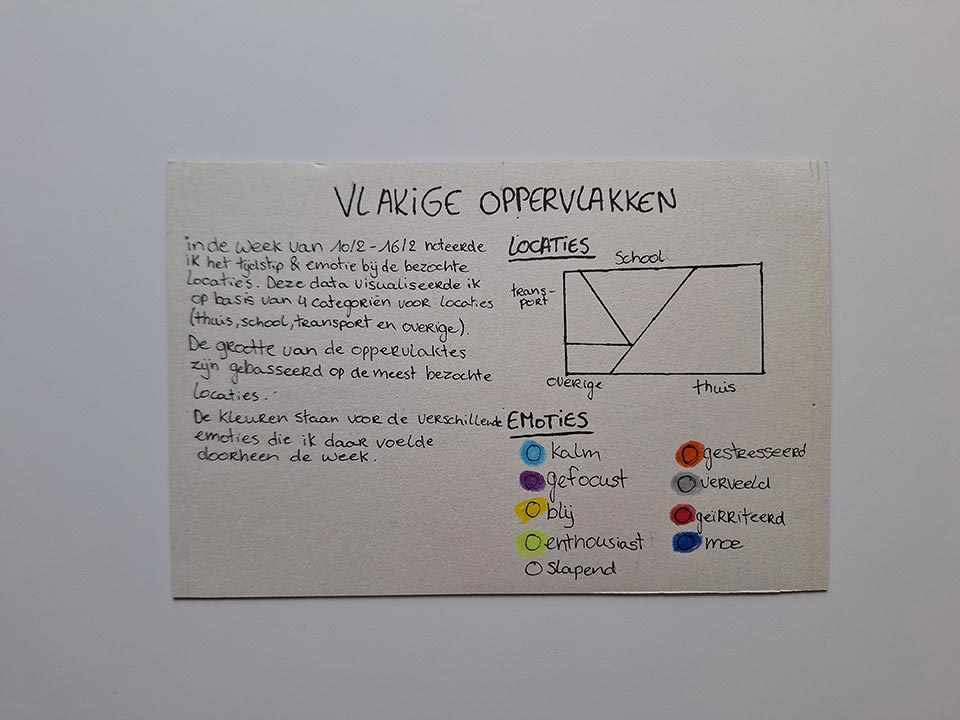 VLAKIGE OPPERVLAKKEN
in de week van 10/2 - 16/2 noteerde
ik het tijdstip & emotie bij de bezochte
locaties. Deze data visualiseerde ik
op basis van 4 categoriën voor locaties
(thuis, school, transport en overige).
De grootte van de oppervlaktes
zijn gebasseerd op de meest bezochte
locaties.
De kleuren staan voor de verschillende
emoties die ik daar voelde
doorheen de week.
LOCATIES
School
trans-
port
overige
thuis
EMOTIES
kalm
gefocust
blij
enthousiast
slapend
gestresseerd
verveeld
geïrriteerd
moe